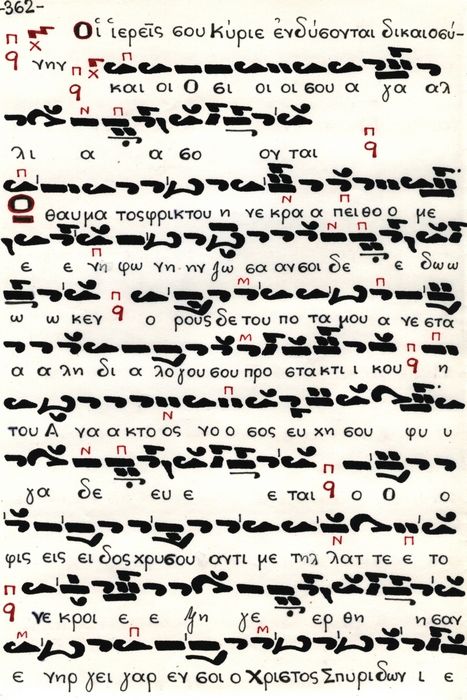 -362-
Οἱ ἱερεῖς σου Κύριε ἐνδύσονται δικαιοσύ-
νην και οι Ο σι οι οι σου α γα αλ
λι α α σο ον ται
Ο θαυμα τος φρικτου η νε κρα α πειθο ο με
ε ε νη φω νη ην ζω σα αν σοι δε ε δω ω
ω ω κεν ο ρους δε του πο τα μου α νε στα
α α λη δι α λο γου σου προ στα κτι ι κου η
του Α να α κτο ος νο ο σος ευ χη σου φυ υ
γα δε ευ ε ε ται ο Ο ο
φις εις ει δος χρυ σου αντι με τηλ λατ τε ε το
νε κροι ε ε ζη γε ερ θη η σαν
ε νηρ γει γαρ εν σοι ο Χριστος Σπυριδων ι ε